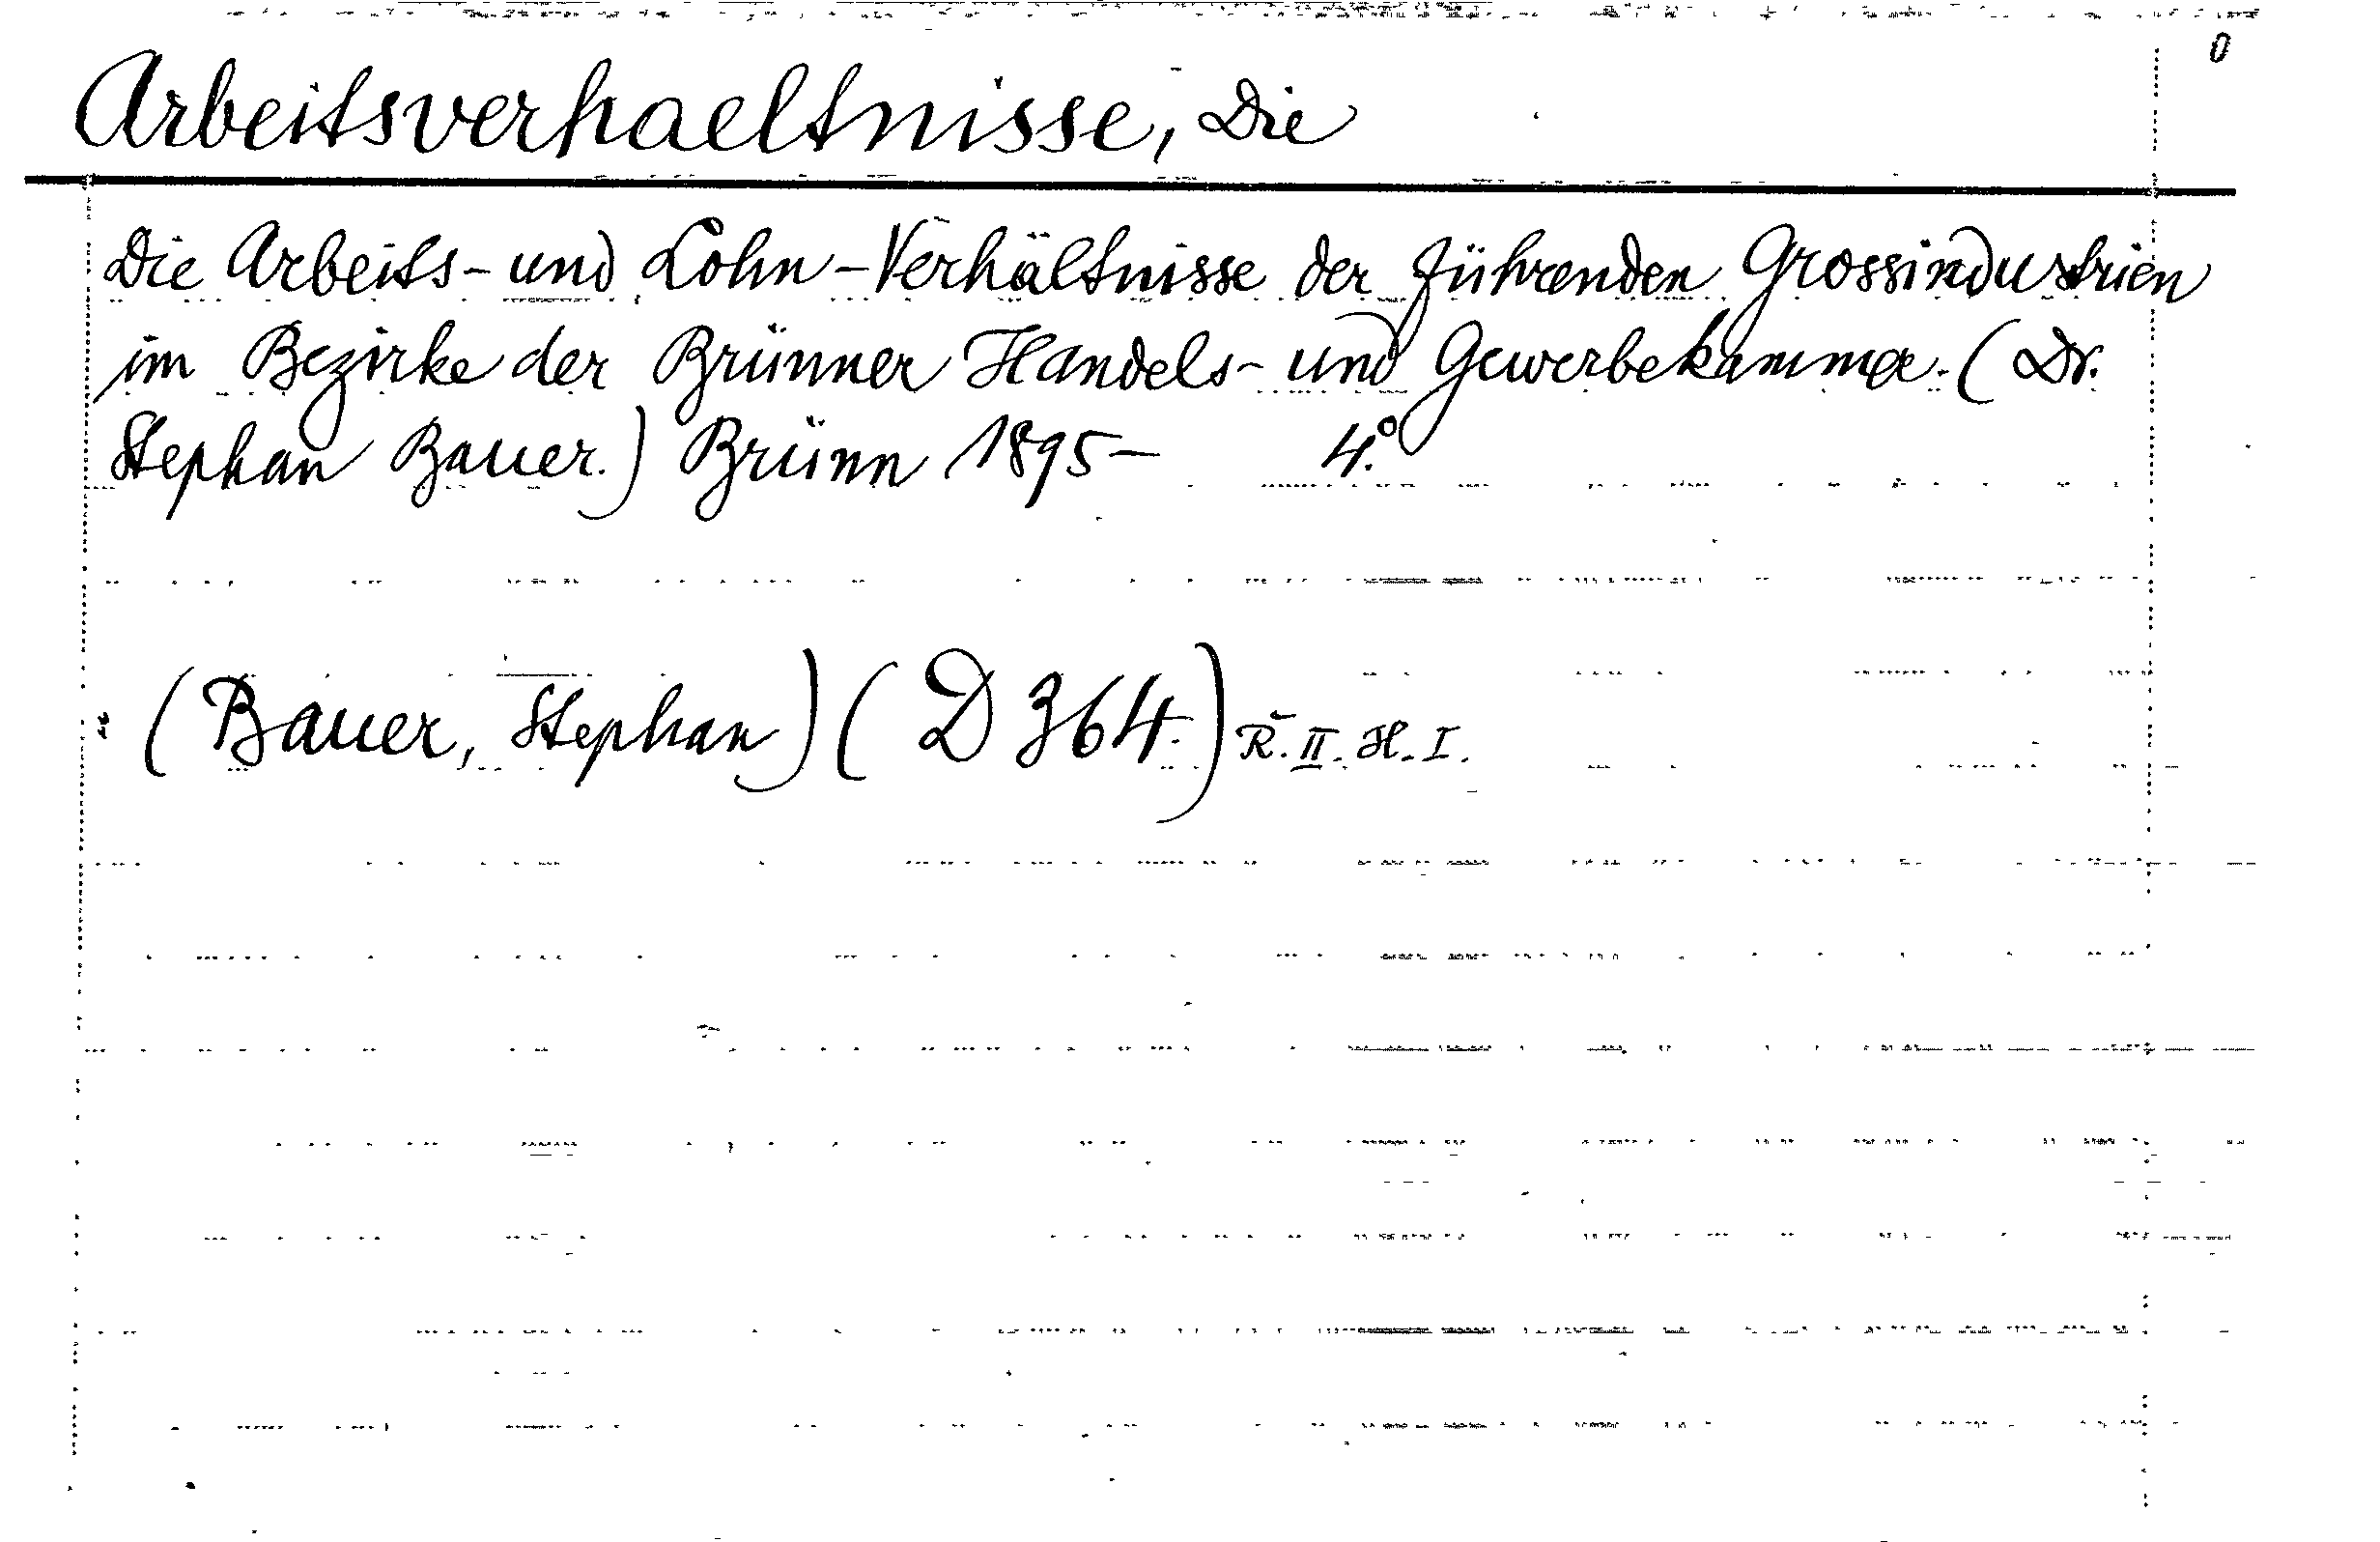 0
Arbeitsverhaeltnisse, Die
Die Arbeits- und Lohn-Verhältnisse der führenden Grossindustrien
im Bezirke der Brünner Handels- und Gewerbekammer. (Dr.
Stephan Bauer.) Brünn 1895- 4.°
(Bauer, Stephan) (D 364.) R. II. H. I.